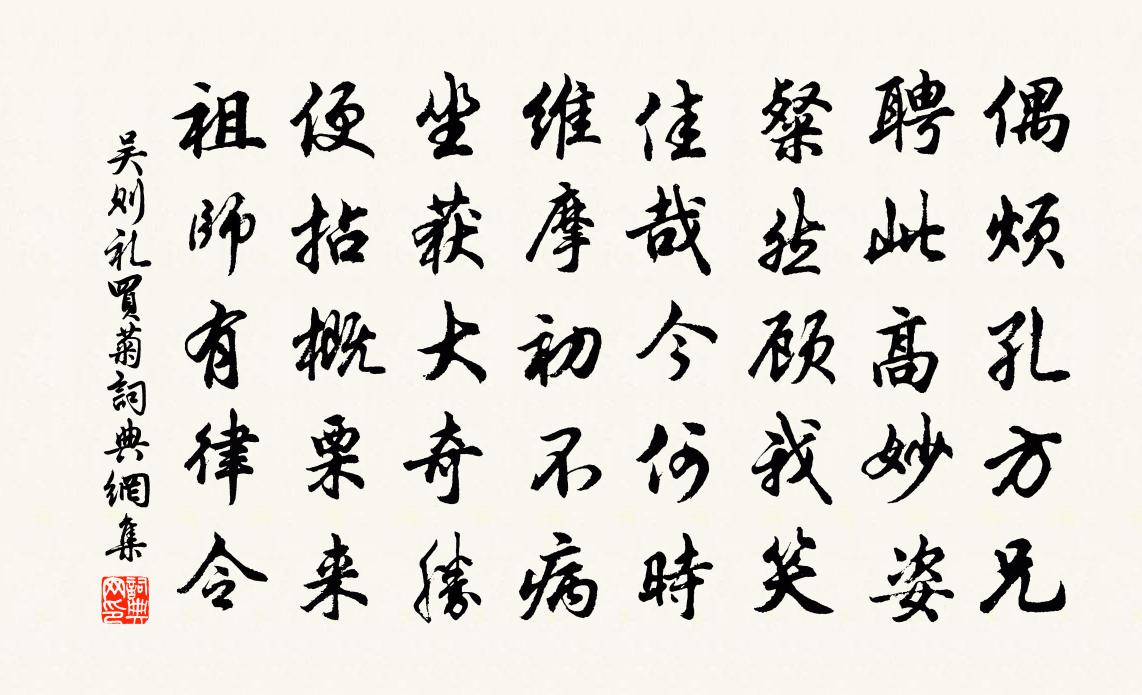 偶烦孔方兄
聘此高妙姿
粲然顾我笑
佳哉今何時
维摩初不病
坐获大奇勝
便拈概栗来
祖师有律令
吴则礼買菊詞典網集
詞典网印